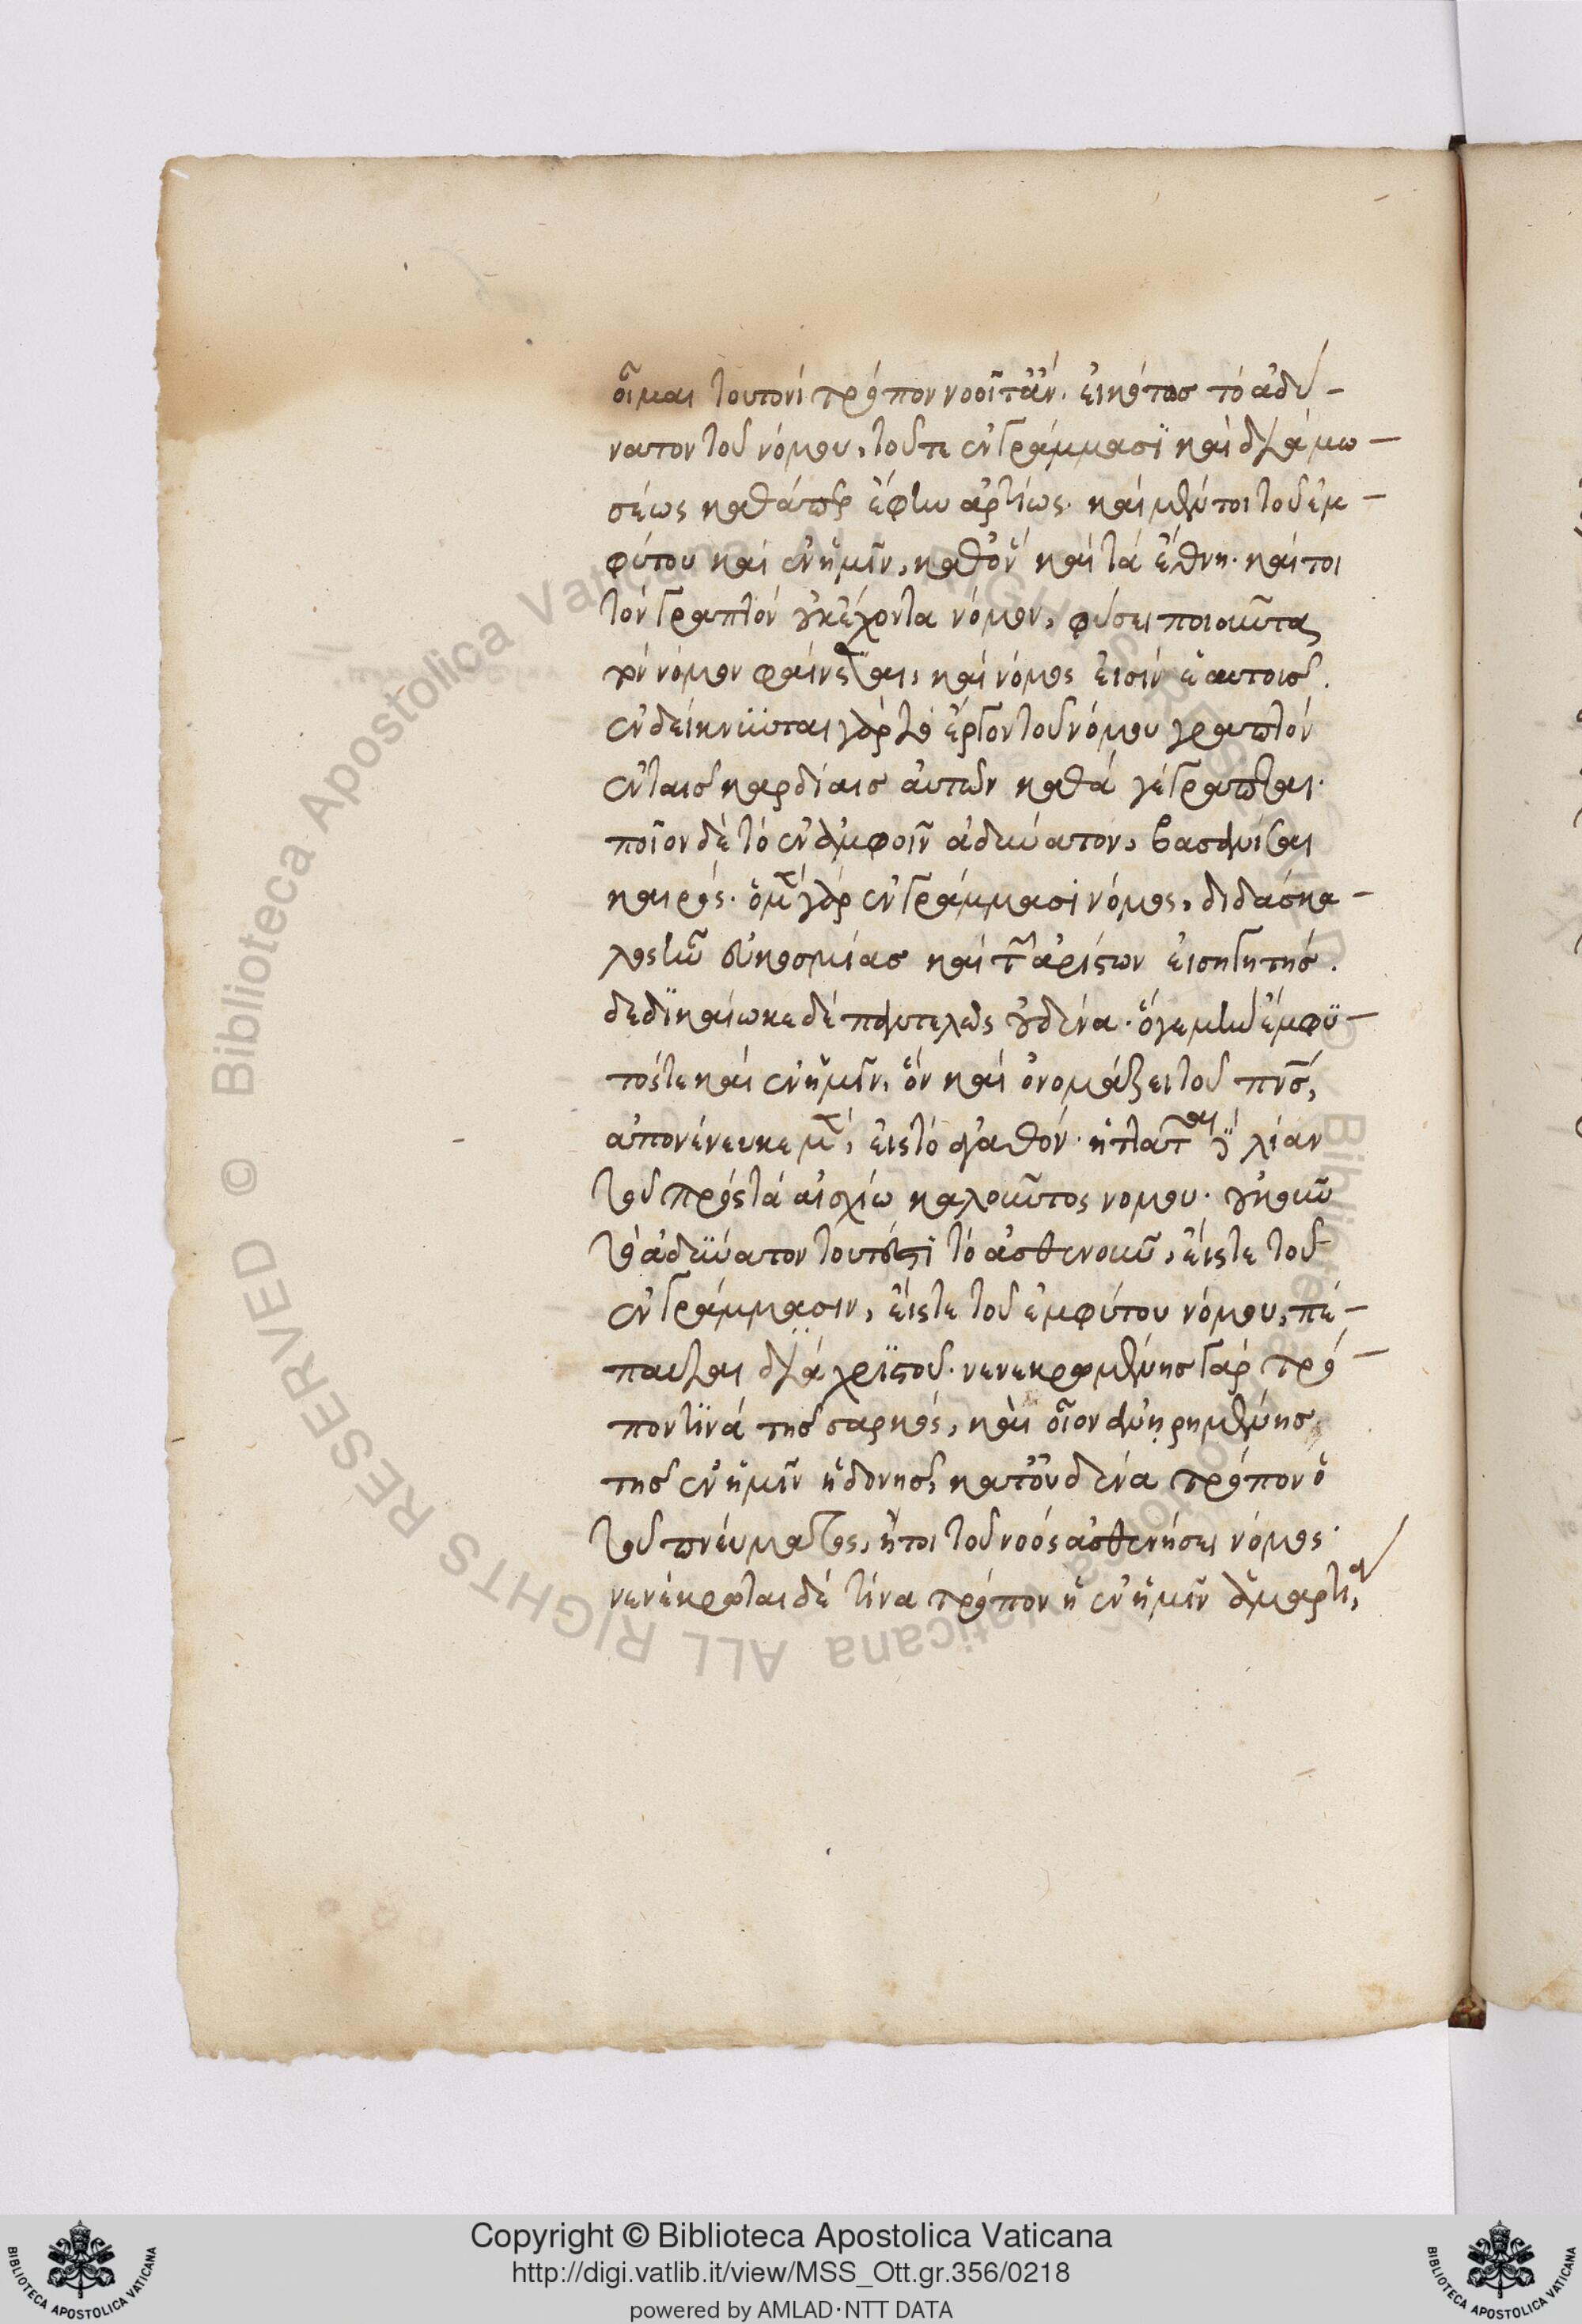 οἶμαι τουτονὶ τρόπον νοοῖτ ἄν. εἰκότως τὸ ἀδύ-
νατον τοῦ νόμου, τοῦτε ἐν γράμμασϊ καὶ διὰ μω-
σέως καθάπερ ἔφην ἀρτίως. καὶ μέντοι τοῦ ἐμ-
φύτου καὶ ἐν ἡμῖν, καθ ὃν καὶ τὰ ἔθνη. καίτοι
τὸν γραπτὸν οὐκ ἔχοντα νόμον, φύσει ποιοῦντα
τὸν νόμον φαίνεται, καὶ νόμος εἰσὶν ἑαυτοῖς.
ἐνδείκνϋνται γὰρ τὸ ἔργον τοῦ νόμου γραπτὸν
ἐν ταῖς καρδίαις αὐτῶν καθὰ γέγραπται.
ποῖον δὲ τὸ ἐν ἀμφοῖν ἀδύνατον, βασανίσαι
καιρός. ὁ μὲν γὰρ ἐν γράμμασι νόμος, διδάσκα-
λος ἦν εὐκοσμίας καὶ τῶν ἀρίστων εἰσηγητής.
δεδϊκαίωκε δὲ παντελῶς οὐδένα. ὅγε μὴν ἔμφϋ-
τός τε καὶ ἐν ἡμῖν, ὃν καὶ ὀνομάζει τοῦ πνς,
ἀπονένευκε μὲν, εἰς τὸ ἀγαθόν. ἡττᾶται δὲ λίαν
τοῦ πρὸς τὰ αἰσχίω καλοῦντος νόμου. οὐκοῦν
τὸ ἀδϋνατον τουτέστϊ τὸ ἀσθενοῦν, εἴς τε τοῦ
ἐν γράμμασιν, εἴς τε τοῦ ἐμφύτου νόμου, πέ-
παυται διὰ χρϊστοῦ. νενεκρωμένης γὰρ τρό-
πον τϊνὰ τῆς σαρκὸς, καὶ οἷον ἀνῃρημένης
τῆς ἐν ἡμῖν ἡδονῆς, κατ οὐδένα τρόπον ὁ
τοῦ πνεύματος, ἤτοι τοῦ νοός ἀσθενήσει νόμος.
νενέκρωται δέ τινα τρόπον ἡ ἐν ἡμῖν ἁμαρτία,
Copyright © Biblioteca Apostolica Vaticana
http://digi.vatlib.it/view/MSS_Ott.gr.356/0218
powered by AMLAD·NTT DATA